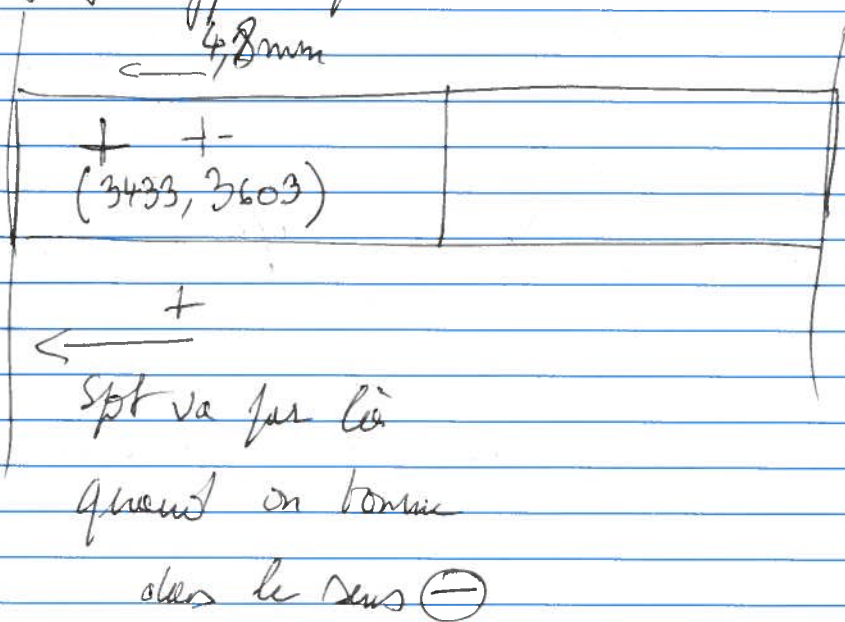 4,8mm
+ +-
(3433, 3603)
+
Spot va par là
quand on tourne
dans le sens ⊖